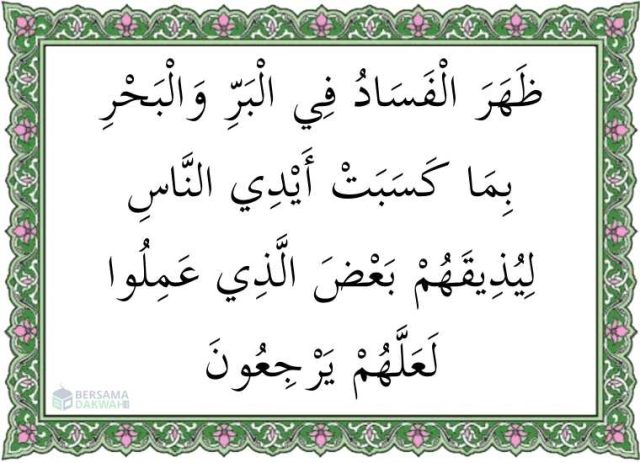 ظَهَرَ الْفَسَادُ فِي الْبَرِّ وَالْبَحْرِ
بِمَا كَسَبَتْ أَيْدِي النَّاسِ
لِيُذِيقَهُمْ بَعْضَ الَّذِي عَمِلُوا
لَعَلَّهُمْ يَرْجِعُونَ
BERSAMA
DAKWAH